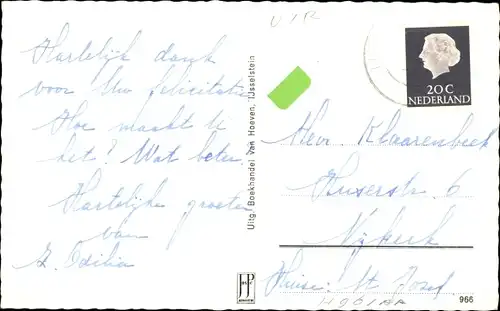 Hartelijk dank
voor Uw felicitatie
Hoe maakt U
het? Wat beter
Hartelijke groeten
van
Z. Odilia
Uitg. Boekhandel Van Hoeven, IJsselstein
20 C
NEDERLAND
Heer Klaarenbeek
6
Nijkerk
Huize: St Jozef
966